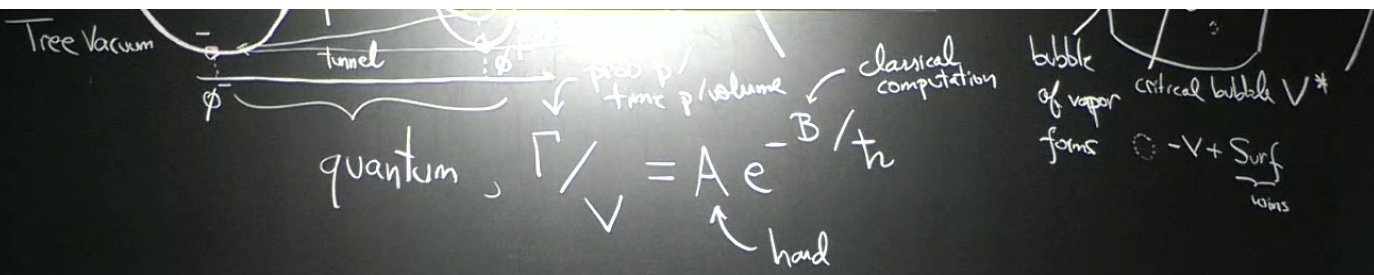 Tree Vacuum
tunnel
φ⁻
prob p/
time p/volume
classical
computation
quantum, Γ/V = A e^{-B/ħ}
hard
bubble
of vapor
forms
critical bubble V*
-V + Surf
wins